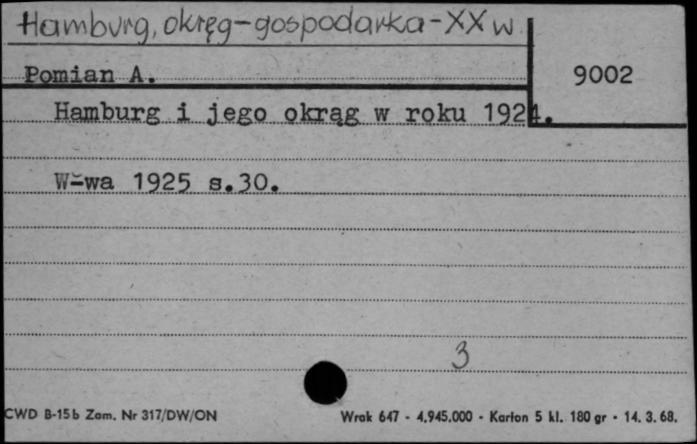 Hamburg, okręg-gospodarka-XX w.
Pomian A.
9002
Hamburg i jego okrąg w roku 1924.
W-wa 1925 s.30.
3
CWD B-15b Zam. Nr 317/DW/ON
Wrak 647 - 4,945.000 - Karton 5 kl. 180 gr - 14. 3. 68.